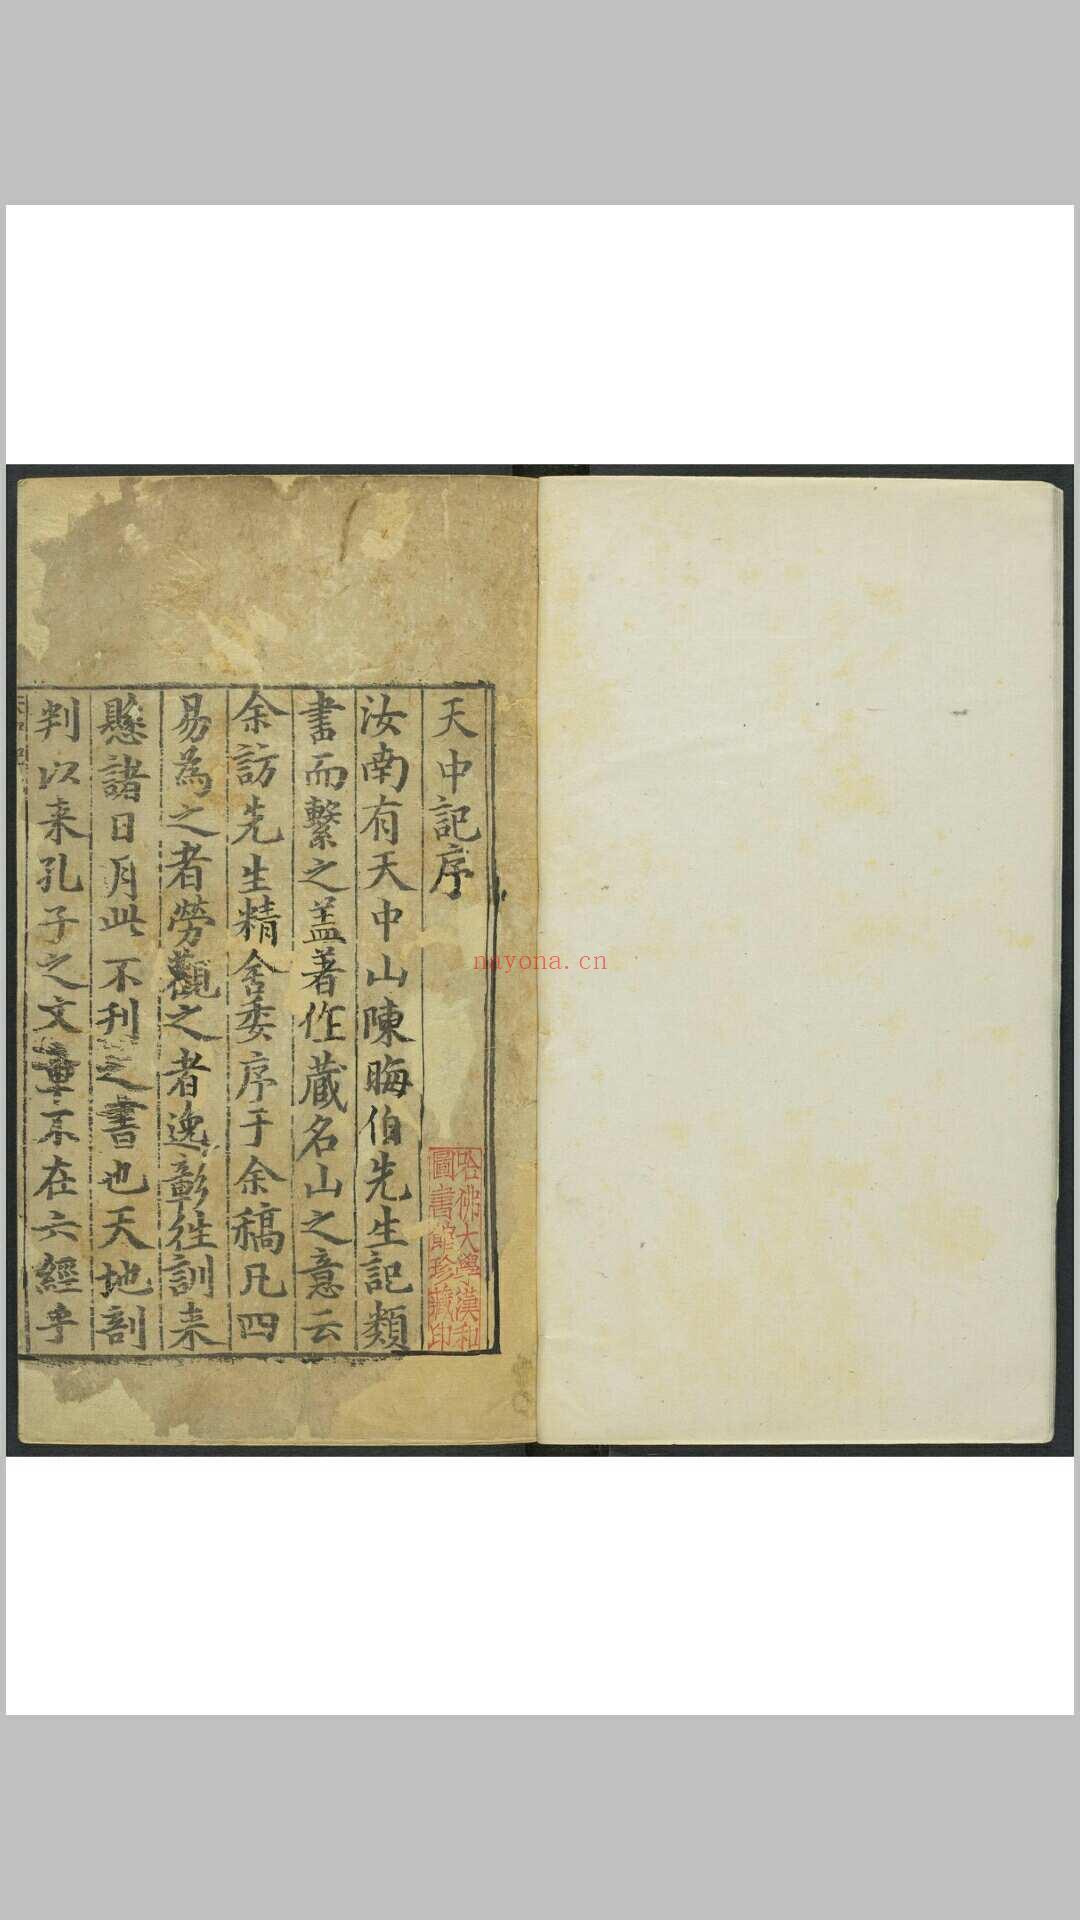 天中記序
汝南有天中山陳晦伯先生記類
書而繫之蓋著作藏名山之意云
余訪先生精舍委序于余稿凡四
易為之者勞觀之者逸彰徃訓来
懸諸日月此不刊之書也天地剖
判以来孔子之文章不在六經乎
哈佛大學漢和
圖書館珍藏印
nayona.cn